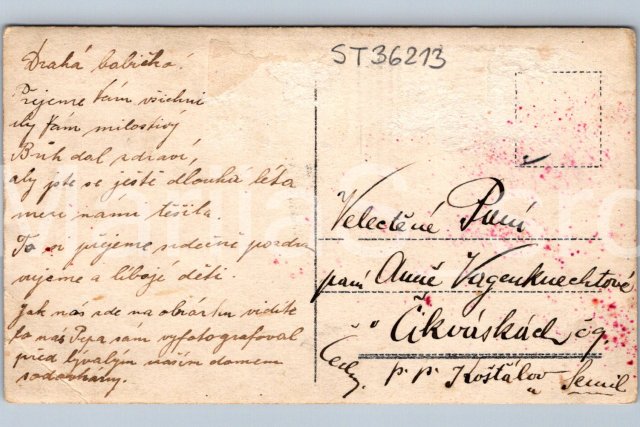 ST36213
Drahá babičko!
Přejeme Vám všichni
aby Vám milostivý
Bůh dal zdraví,
aby jste se ještě dlouhá léta
mezi námi těšila
To si přejeme srdečně pozdra
vujeme a líbají děti.
jak nás zde na obrázku vidíte
to nás Pepa sám vyfotografoval
před bývalým naším domem
Velectěné Paní
paní Anně Vagenknechtové
v Čikváskách čg.
p. p. Košťálov
Semil
Čechy.